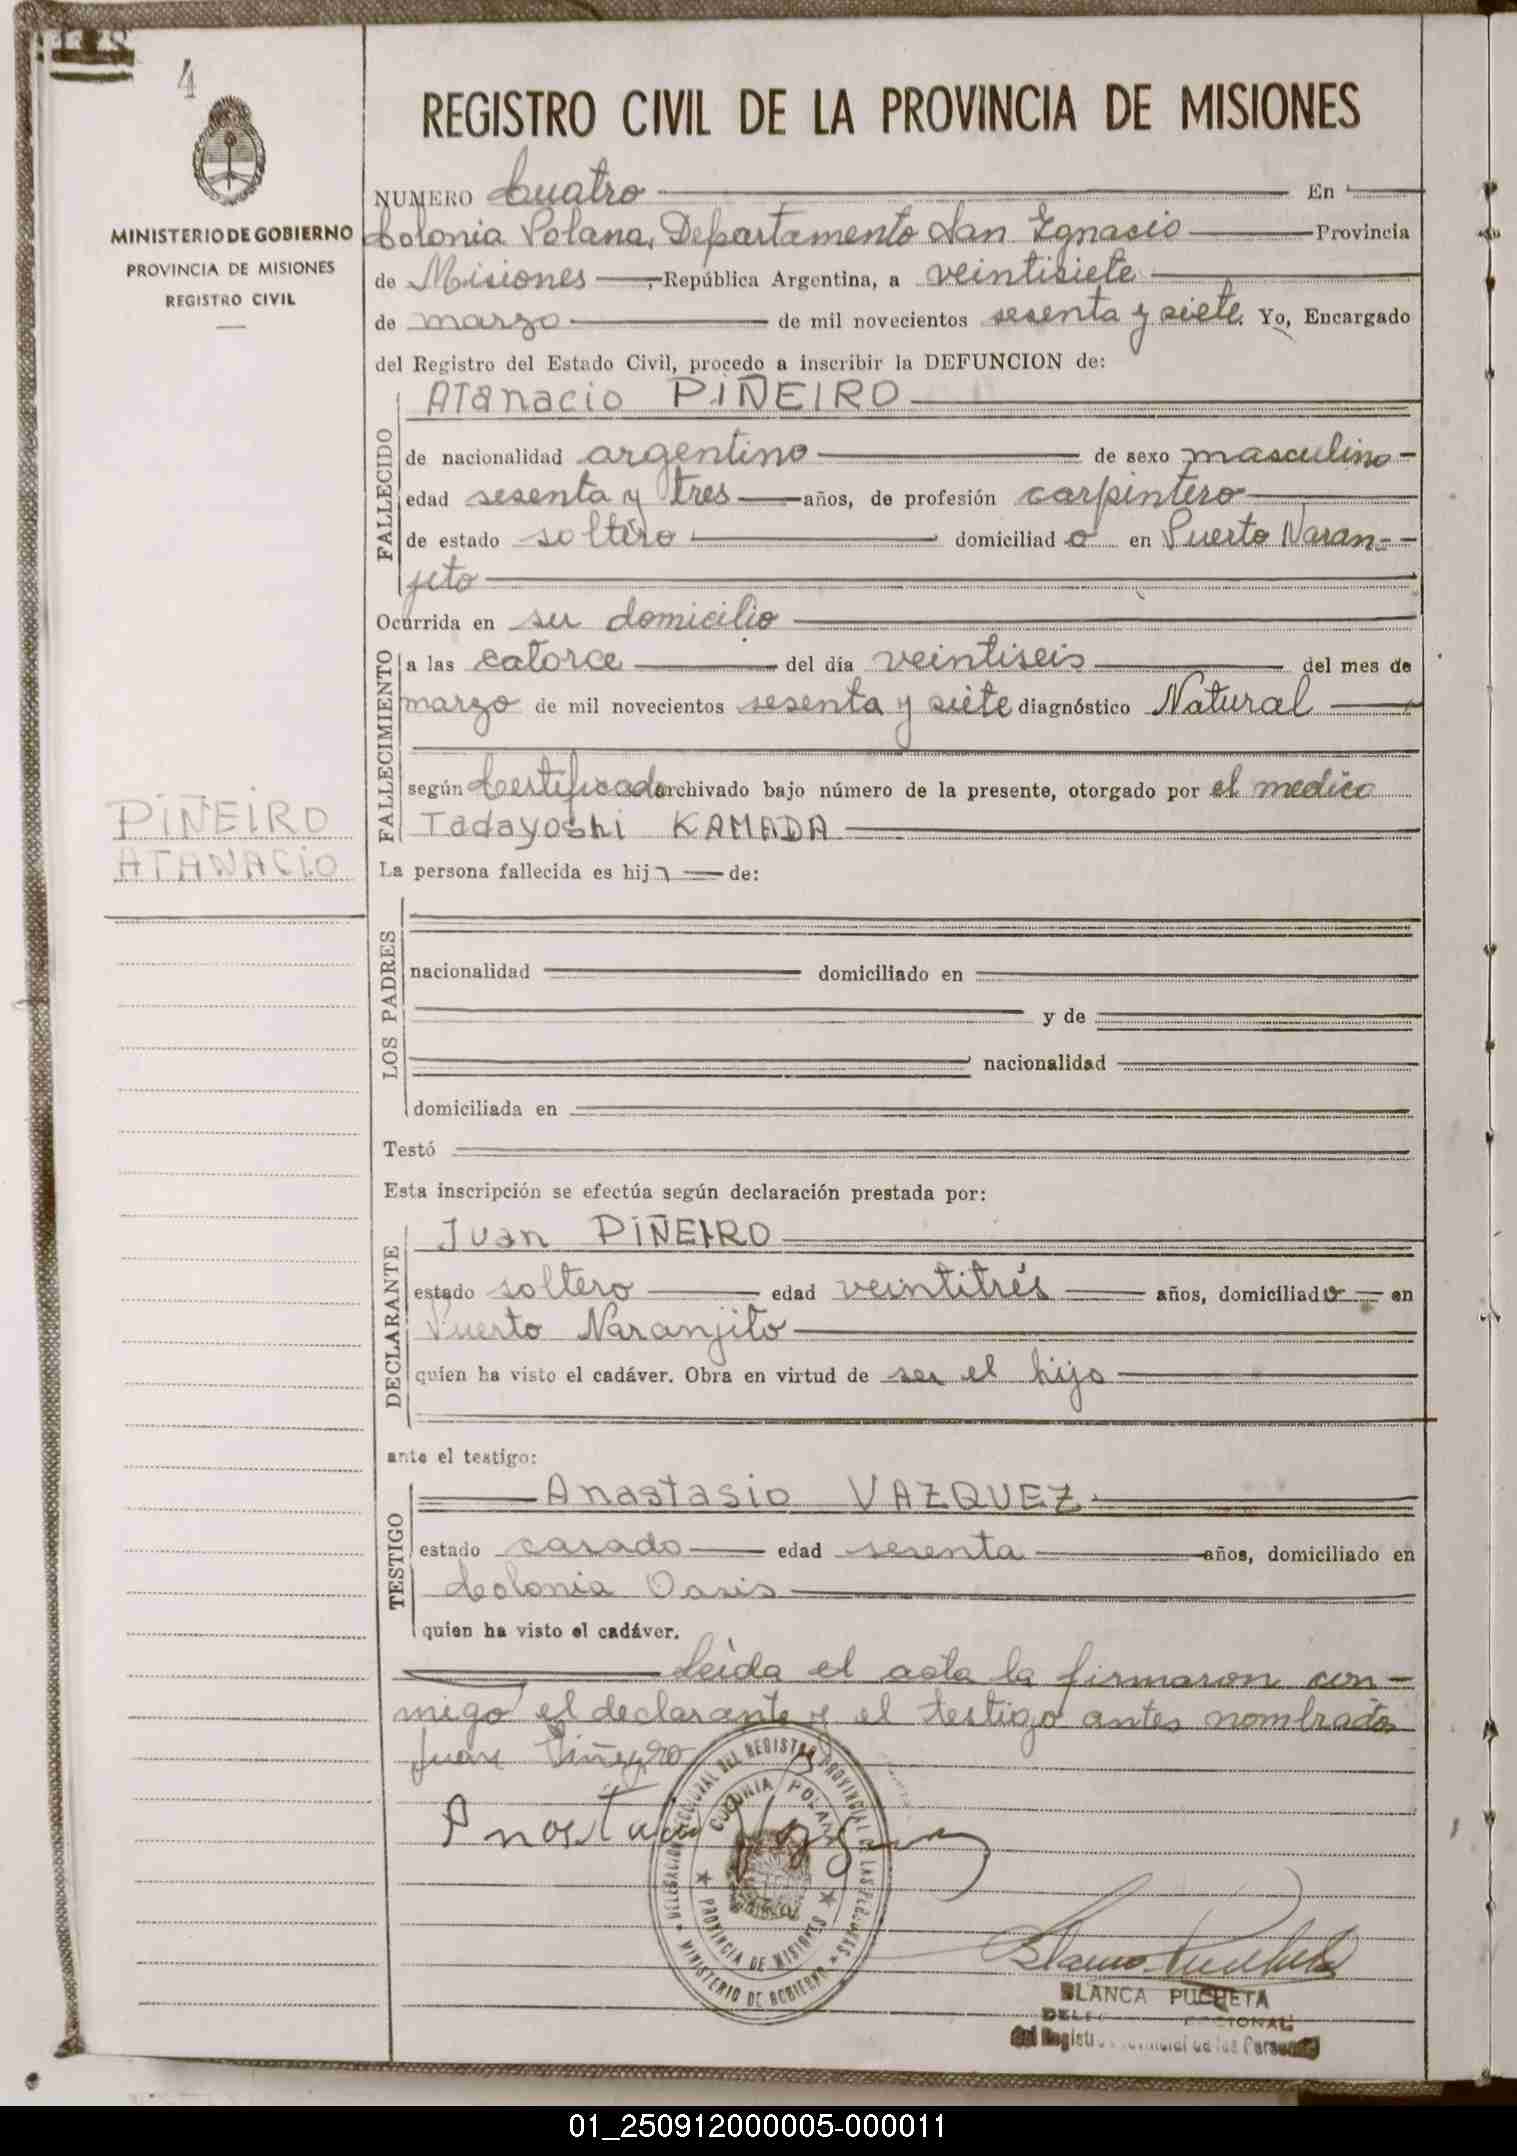 4
MINISTERIO DE GOBIERNO
PROVINCIA DE MISIONES
REGISTRO CIVIL
REGISTRO CIVIL DE LA PROVINCIA DE MISIONES
NUMERO Cuatro En
Colonia Polana, Departamento San Ignacio Provincia
de Misiones, República Argentina, a veintisiete
de marzo de mil novecientos sesenta y siete. Yo, Encargado
del Registro del Estado Civil, procedo a inscribir la DEFUNCION de:
FALLECIDO
Atanacio PIÑEIRO
de nacionalidad argentino de sexo masculino
edad sesenta y tres años, de profesión carpintero
de estado soltero domiciliado en Puerto Naran-
jito
Ocurrida en su domicilio
FALLECIMIENTO
a las catorce del día veintiseis del mes de
marzo de mil novecientos sesenta y siete diagnóstico Natural
según Certificado archivado bajo número de la presente, otorgado por el medico
Tadayoshi KAMADA
PIÑEIRO
ATANACIO
La persona fallecida es hij de:
LOS PADRES
nacionalidad domiciliado en
y de
nacionalidad
domiciliada en
Testó
Esta inscripción se efectúa según declaración prestada por:
DECLARANTE
Juan PIÑEIRO
estado soltero edad veintitrés años, domiciliado en
Puerto Naranjito
quien ha visto el cadáver. Obra en virtud de ser el hijo
ante el testigo:
TESTIGO
Anastasio VAZQUEZ
estado casado edad sesenta años, domiciliado en
Colonia Oasis
quien ha visto el cadáver.
Leída el acta la firmaron con-
migo el declarante y el testigo antes nombrados
Juan Piñeyro
DELEGACION SECCIONAL DEL REGISTRO PROVINCIAL DE LAS PERSONAS
COLONIA POLANA
PROVINCIA DE MISIONES
MINISTERIO DE GOBIERNO
Blanca Pucheta
BLANCA PUCHETA
del Registro Provincial de las Personas
01_250912000005-000011